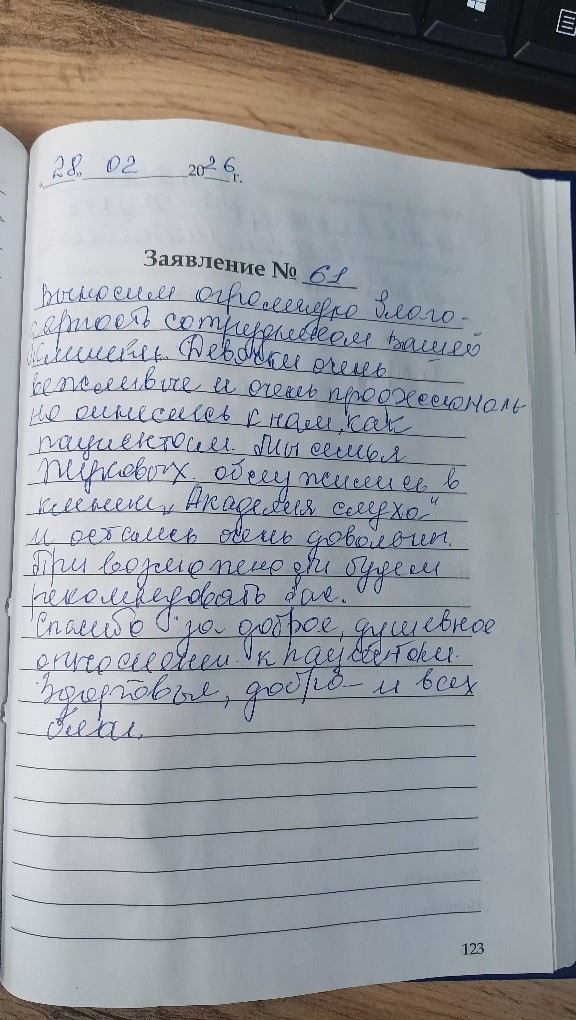 «28» 02 2026 г.
Заявление № 61
Выносим огромную благо-
дарность сотрудникам вашей
клиники. Девочки очень
вежливые и очень профессиональ
но отнеслись к нам, как
пациентам. Мы семья
обслужились в
клинике „Академия слуха"
и остались очень довольны.
При возможности будем
рекомендовать Вас.
Спасибо за доброе, душевное
отношении к пациентам.
Здоровья, добра и всех
благ.
123